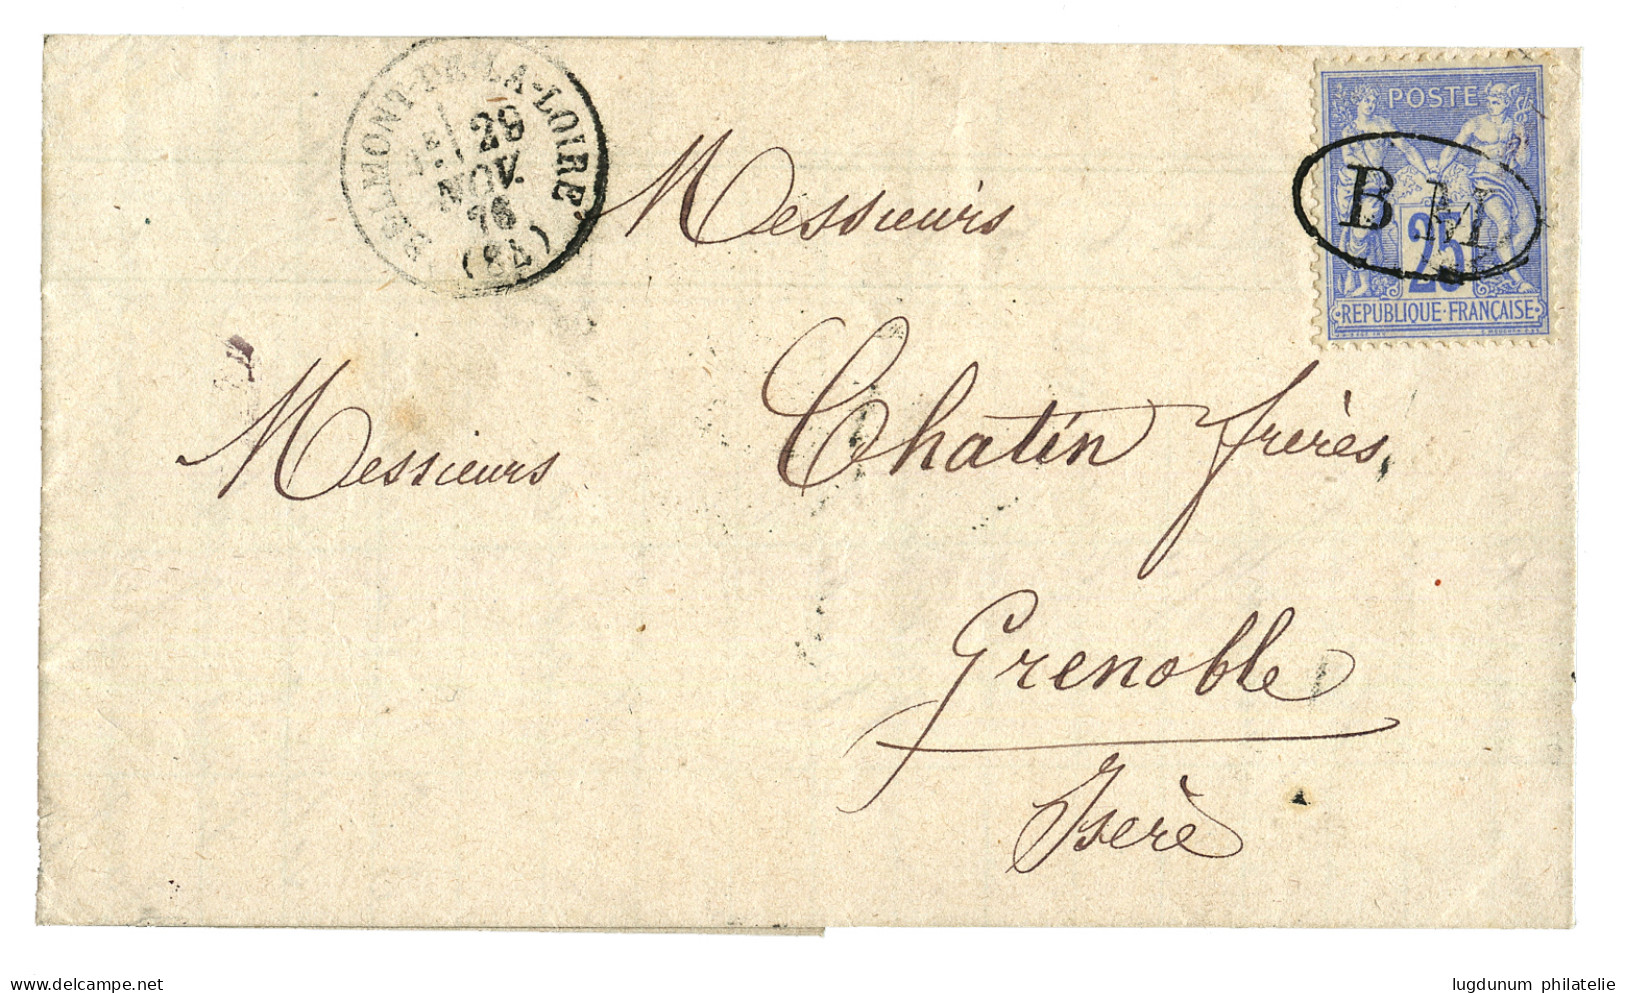 BELMONT-DE-LA-LOIRE
29
NOV.
76
(84)
POSTE
B M
25
REPUBLIQUE·FRANÇAISE
Messieurs
Messieurs Chatin frères,
Grenoble
Isère
www.delcampe.net
lugdunum philatelie